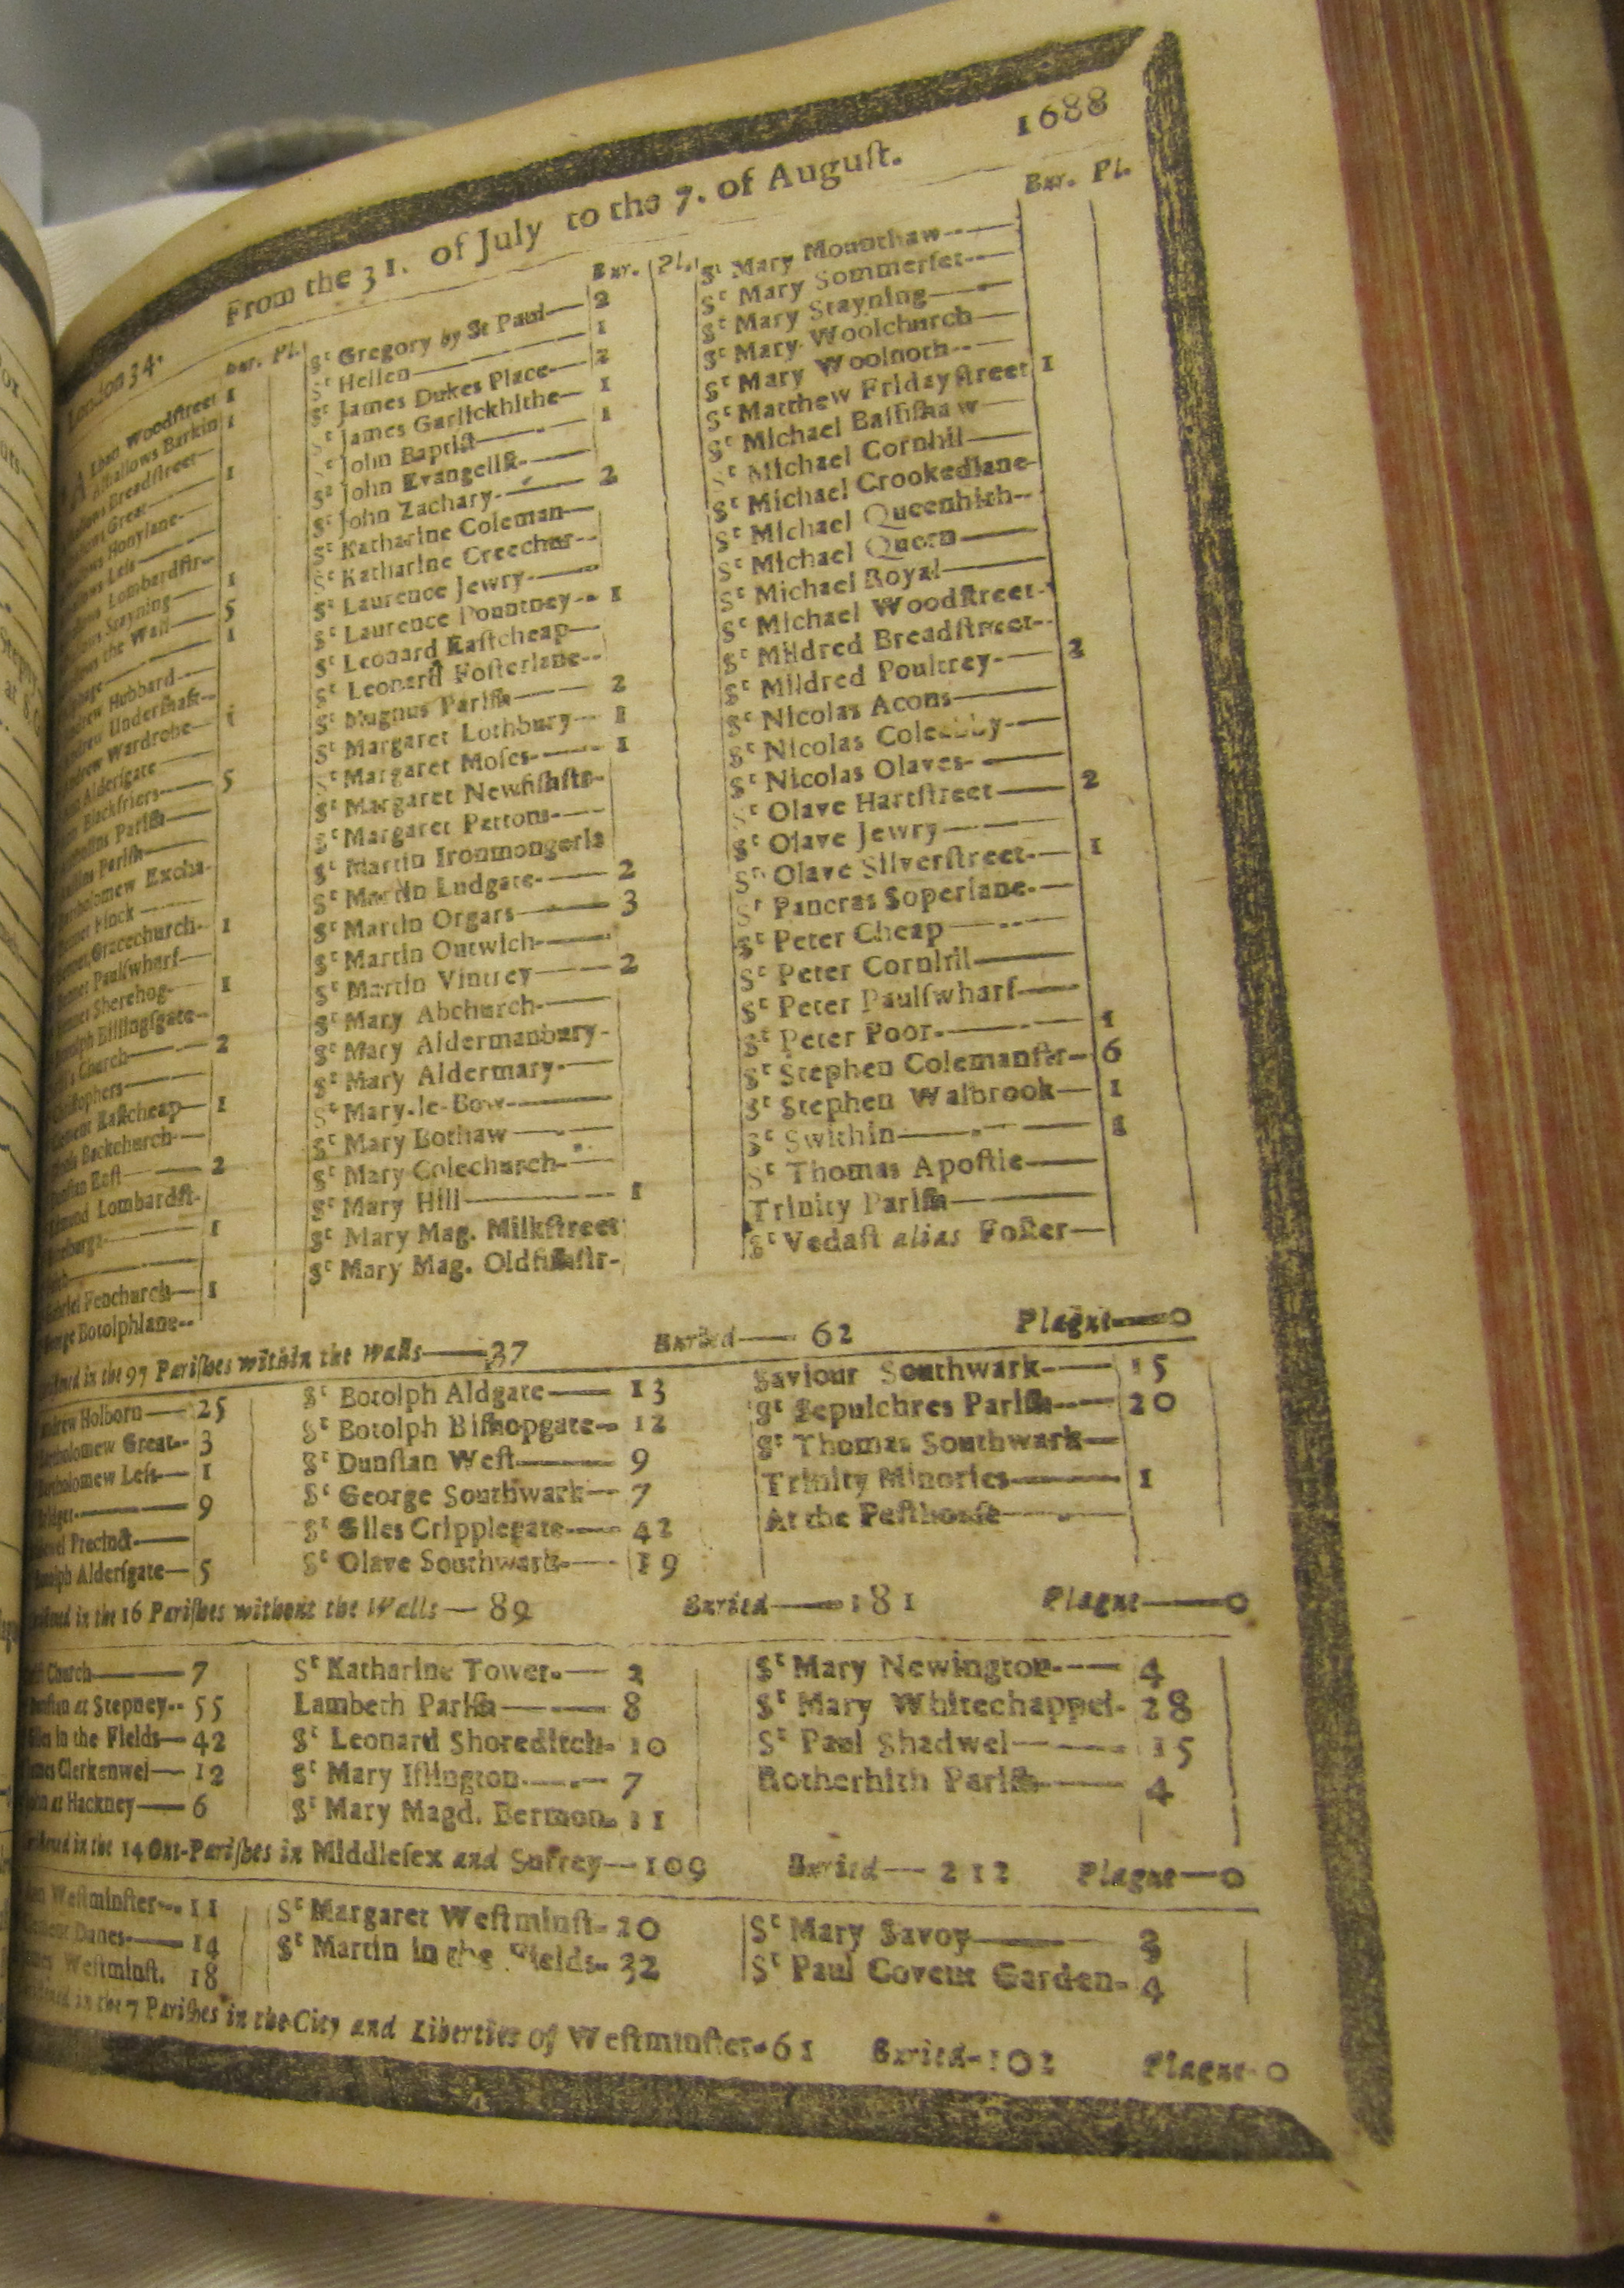 1688
From the 31. of July to the 7. of Auguſt.
London 34.
Bur. Pl.
Woodſtreet 1
Barkin 1
Breadſtreet—
Great— 1
Honylane-
Leſs—
Lombardſtr-
Stayning— 1
the Wall— 5
— 1
Hubbard—
Underſhaft-
Wardrobe— 1
Alderſgate—
Blackfriers— 5
Pariſh—
Pariſh—
Excha-
Finck—
Gracechurch- 1
Paulſwharf—
Sherehog- 1
Billingſgate--
Church— 2
Eaſtcheap— 1
Backchurch—
Eaſt— 2
Lombardſt-
— 1
Fenchurch— 1
Botolphlane--
Bur. Pl.
St Gregory by St Paul— 2
St Hellen— 1
St James Dukes Place— 2
St James Garlickhithe— 1
St John Baptiſt— 1
St John Evangeliſt—
St John Zachary— 2
St Katharine Coleman—
St Katharine Creechur--
St Laurence Jewry—
St Laurence Pountney-- 1
St Leonard Eaſtcheap—
St Leonard Foſterlane--
St Magnus Pariſh— 2
St Margaret Lothbury— 1
St Margaret Moſes— 1
St Margaret Newfiſhſtr-
St Margaret Pattons—
St Martin Ironmongerla
St Martin Ludgate— 2
St Martin Orgars— 3
St Martin Outwich—
St Martin Vintrey— 2
St Mary Abchurch—
St Mary Aldermanbury-
St Mary Aldermary—
St Mary-le-Bow—
St Mary Bothaw—
St Mary Colechurch—
St Mary Hill— 1
St Mary Mag. Milkſtreet
St Mary Mag. Oldfiſhſtr-
Bur. Pl.
St Mary Mounthaw—
St Mary Sommerſet—
St Mary Stayning—
St Mary Woolchurch—
St Mary Woolnoth—
St Matthew Fridayſtreet 1
St Michael Baſſiſhaw—
St Michael Cornhil—
St Michael Crookedlane-
St Michael Queenhith--
St Michael Quern—
St Michael Royal—
St Michael Woodſtreet-
St Mildred Breadſtreet--
St Mildred Poultrey— 2
St Nicolas Acons—
St Nicolas Coleabby—
St Nicolas Olaves—
St Olave Hartſtreet— 2
St Olave Jewry—
St Olave Silverſtreet— 1
St Pancras Soperlane—
St Peter Cheap—
St Peter Cornhil—
St Peter Paulſwharf—
St Peter Poor— 1
St Stephen Colemanſtr— 6
St Stephen Walbrook— 1
St Swithin— 1
St Thomas Apoſtle—
Trinity Pariſh—
St Vedaſt alias Foſter—
in the 97 Pariſhes within the Walls—37 Buried— 62 Plague—0
Andrew Holborn— 25
Bartholomew Great-- 3
Bartholomew Leſs— 1
Bridget— 9
Precinct—
Alderſgate— 5
St Botolph Aldgate— 13
St Botolph Biſhopgate— 12
St Dunſtan Weſt— 9
St George Southwark— 7
St Giles Cripplegate— 42
St Olave Southwark— 19
Saviour Southwark— 15
St Sepulchres Pariſh— 20
St Thomas Southwark—
Trinity Minories— 1
At the Peſthouſe—
in the 16 Pariſhes without the Walls— 89 Buried—181 Plague—0
Church— 7
at Stepney-- 55
in the Fields— 42
Clerkenwel— 12
at Hackney— 6
St Katharine Tower— 2
Lambeth Pariſh— 8
St Leonard Shoreditch- 10
St Mary Iſlington— 7
St Mary Magd. Bermon- 11
St Mary Newington— 4
St Mary Whitechappel- 28
St Paul Shadwel— 15
Rotherhith Pariſh— 4
in the 14 Out-Pariſhes in Middleſex and Surrey—109 Buried— 212 Plague—0
Weſtminſter-- 11
Danes— 14
Weſtminſt. 18
St Margaret Weſtminſt- 20
St Martin in the Fields- 32
St Mary Savoy— 3
St Paul Covent Garden- 4
in the 7 Pariſhes in the City and Liberties of Weſtminſter-61 Buried-102 Plague-0